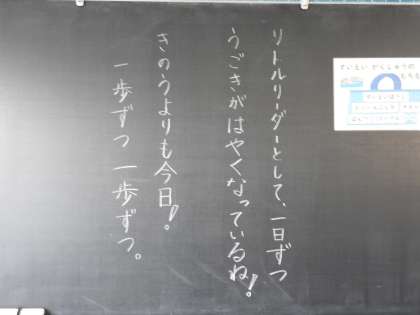 リトルリーダーとして、一日ずつ
うごきがはやくなっているね!。
きのうよりも今日!。
一歩ずつ 一歩ずつ。
すいえい がくしゅうの